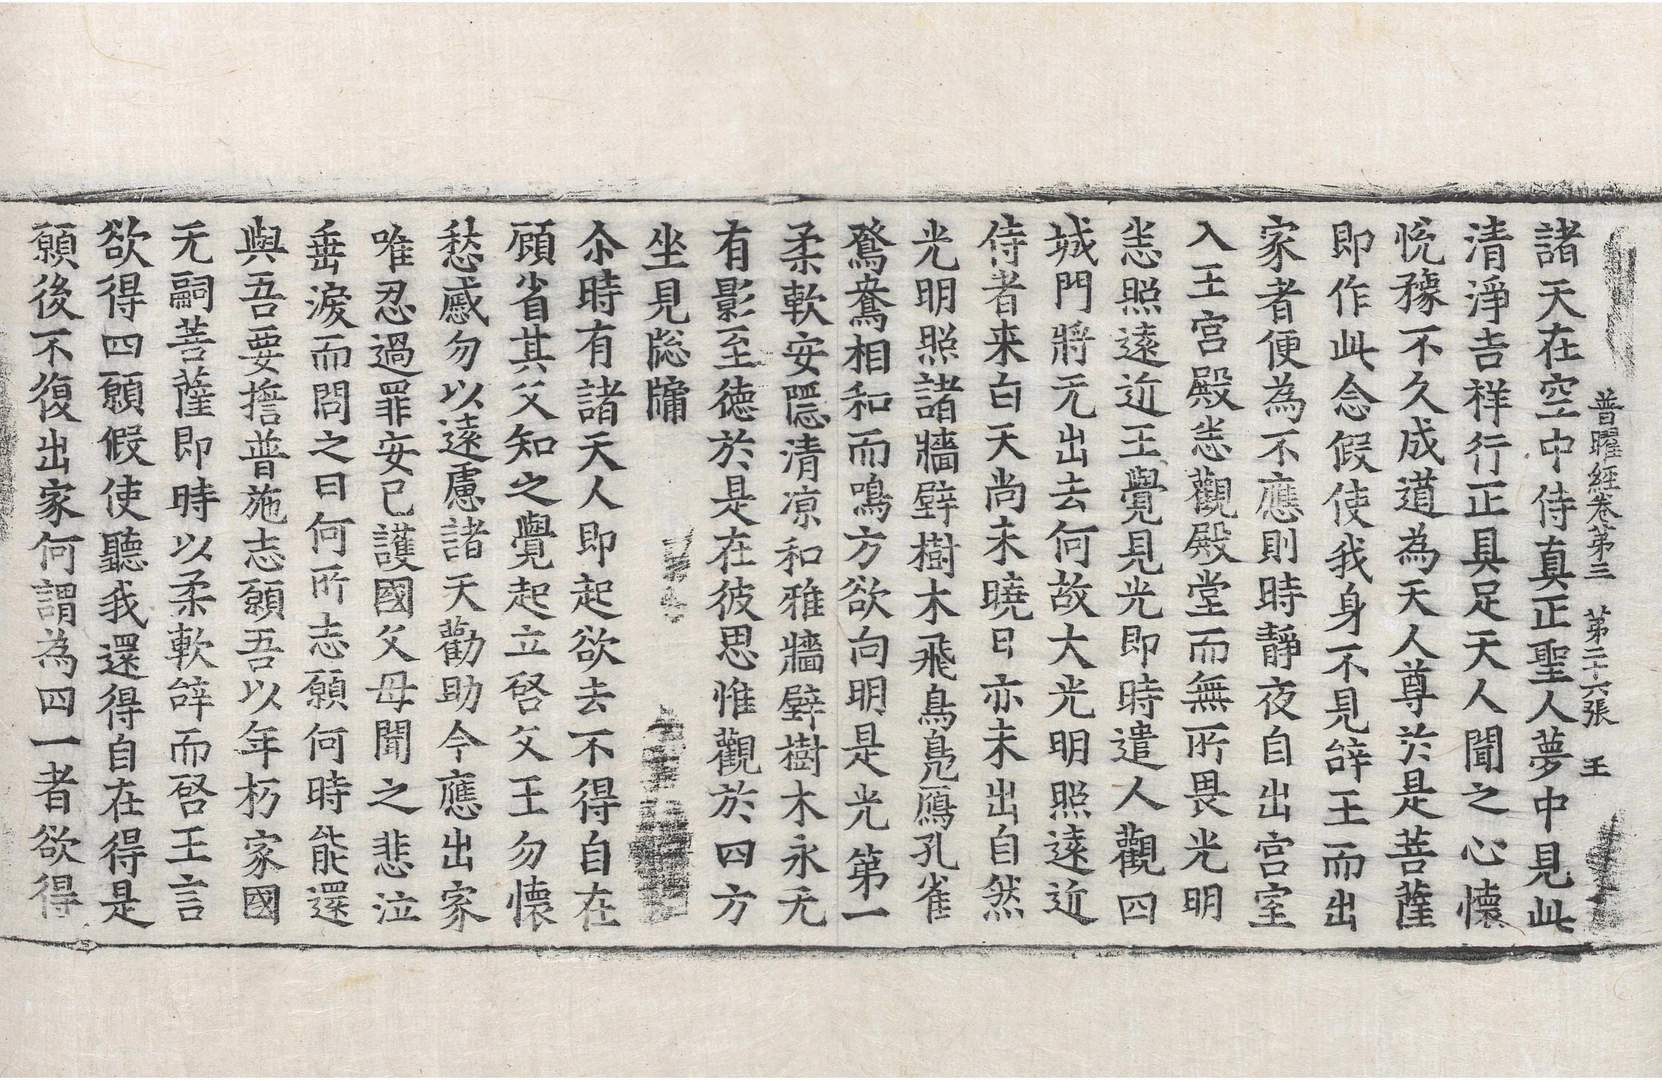 普曜経卷第三 第二十六張 王
諸天在空中侍真正聖人夢中見此
清淨吉祥行正具足天人聞之心懷
恱豫不久成道為天人尊於是菩薩
即作此念假使我身不見辝王而出
家者便為不應則時靜夜自出宫室
入王宫殿恙觀殿堂而無所畏光明
恙照遠近王覺見光即時遣人觀四
城門將无出去何故大光明照遠近
侍者来白天尚未曉日亦未出自然
光明照諸牆壁樹木飛鳥鳧鴈孔雀
鵞鴦相和而鳴方欲向明是光第一
柔軟安隱清凉和雅牆壁樹木永无
有影至德於是在彼思惟觀於四方
坐見牎牖
尒時有諸天人即起欲去不得自在
顧省其父知之覺起立啓父王勿懷
愁慼勿以遠慮諸天勸助今應出家
唯忍過罪安已護國父母聞之悲泣
垂淚而問之曰何所志願何時能還
與吾要擔普施志願吾以年朽家國
无嗣菩薩即時以柔軟辝而啓王言
欲得四願假使聽我還得自在得是
願後不復出家何謂為四一者欲得